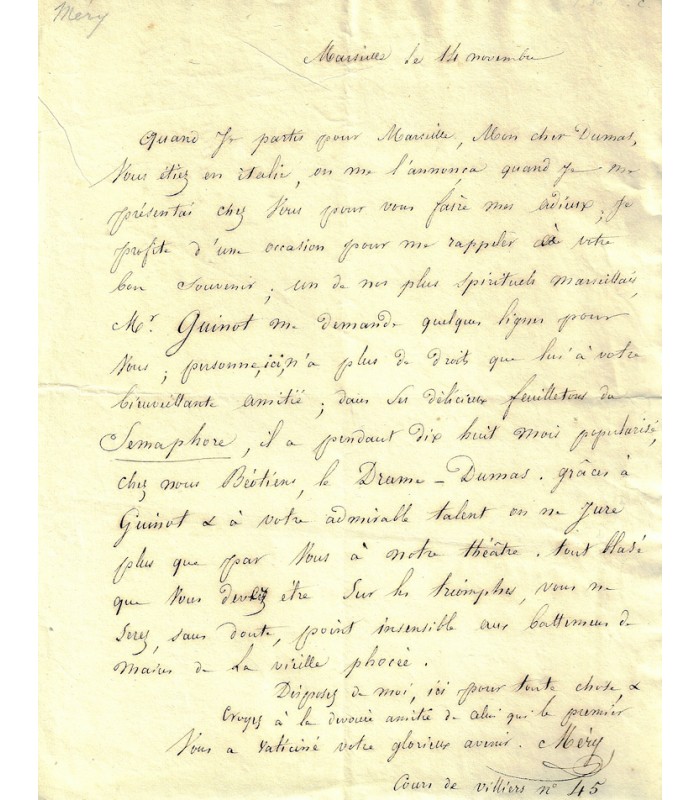 Méry
Marseille le 14 novembre
Quand Je partis pour Marseille, Mon cher Dumas,
Vous étiez en italie, on me l'annonca quand Je me
présentai chez Vous pour vous faire mes adieux; Je
profite d'une occasion pour me rappeler à votre
bon souvenir; un de nos plus spirituels marseillais,
Mr. Guinot me demande quelques lignes pour
Vous; personne, ici, n'a plus de droits que lui à votre
bienveillante amitié; dans ses délicieux feuilletons du
Semaphore, il a pendant dix huit mois popularisé,
chez nous Béotiens, le Drame-Dumas. grâces à
Guinot & à votre admirable talent on ne Jure
plus que par Vous à notre théâtre. tout blasé
que Vous devez être Sur les triomphes, vous ne
serez, sans doute, point insensible aux battemens de
mains de la vieille phocée.
Disposez de moi, ici pour toute chose, &
croyez à la dévouée amitié de celui qui le premier
Vous a vaticiné votre glorieux avenir. Méry
Cours de villiers n° 45